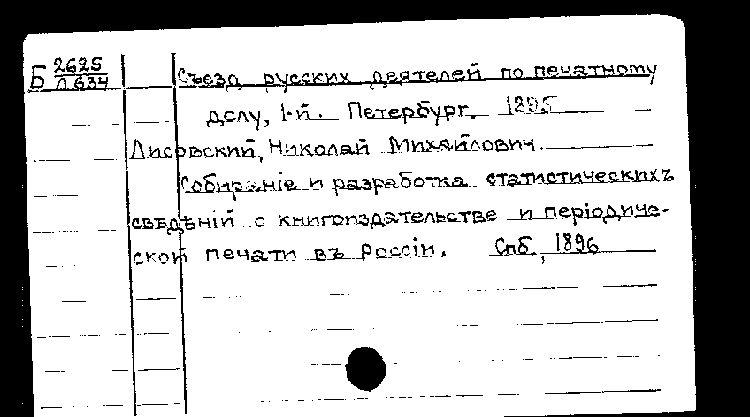 Б 2625
Л634
Съезд русских деятелей по печатному
делу, 1-й. Петербург. 1895
Лисовский, Николай Михайлович.
Собиранiе и разработка статистическихъ
сведѣнiй о книгоиздательстве и перiодиче-
ской печати въ Россiи. Спб., 1896